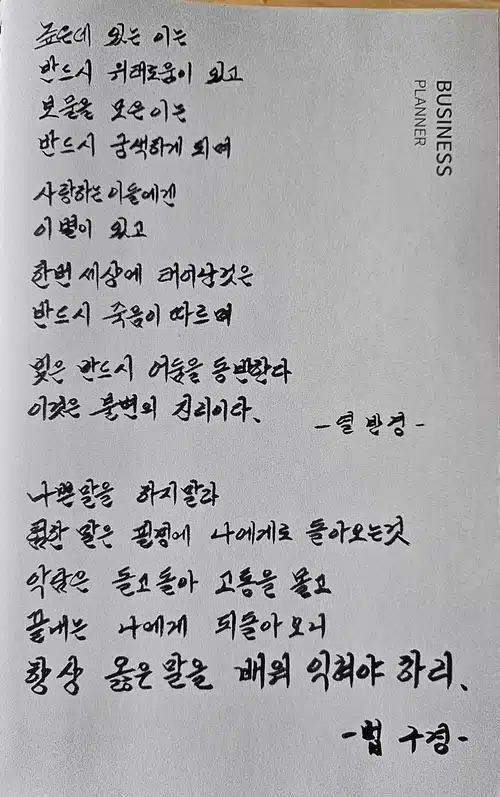 높은데 있는 이는
반드시 위태로움이 있고
보물을 모은이는
반드시 궁색하게 되며
사랑하는이들에겐
이별이 있고
한번 세상에 태어난것은
반드시 죽음이 따르며
빛은 반드시 어둠을 동반한다
이것은 불변의 진리이다.
- 열반경 -
나쁜말을 하지말라
험한 말은 필경에 나에게로 돌아오는것
악담은 돌고돌아 고통을 몰고
끝내는 나에게 되돌아오니
항상 옳은말을 배워 익혀야 하리.
- 법구경 -
BUSINESS
PLANNER